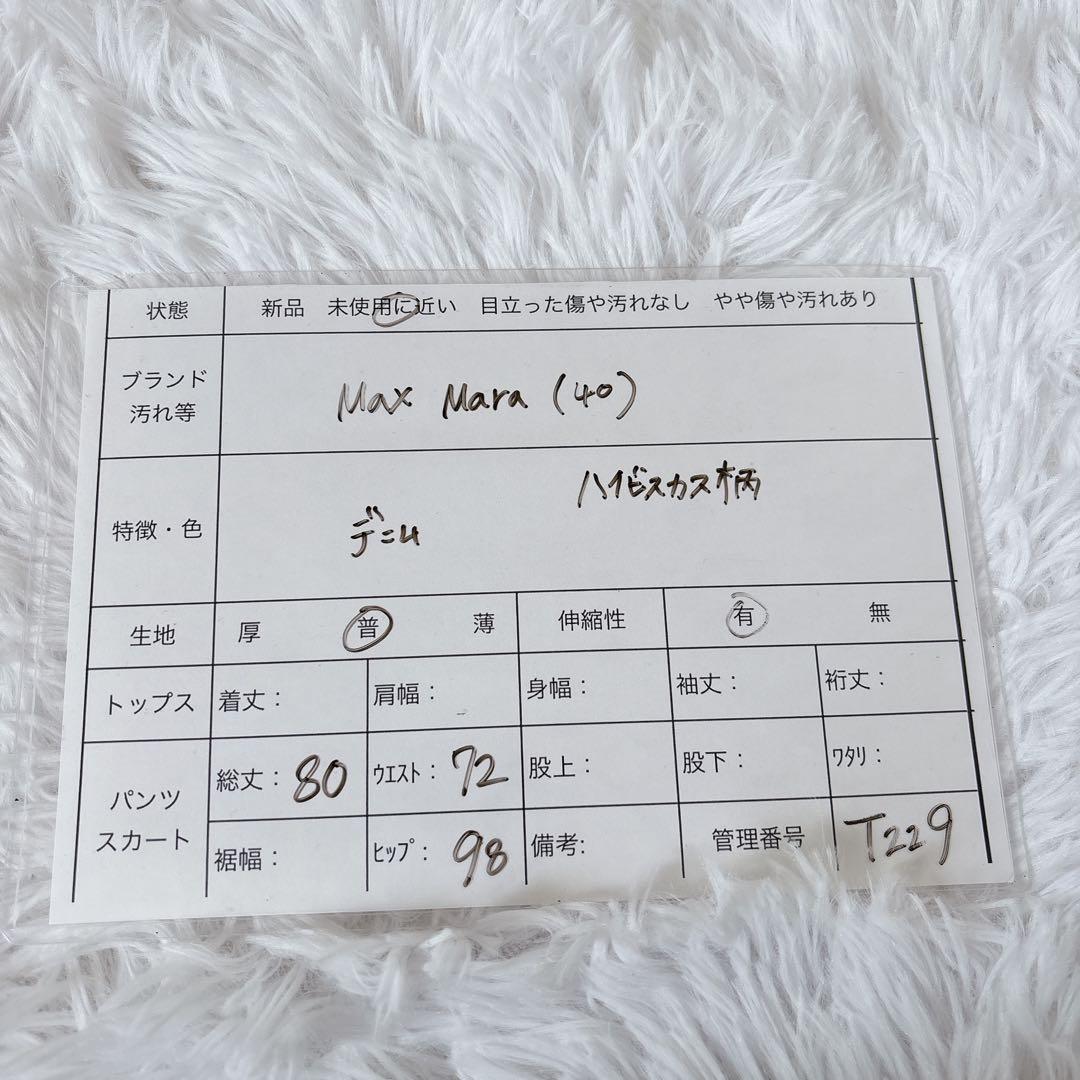 状態 新品 未使用に近い 目立った傷や汚れなし やや傷や汚れあり
ブランド
汚れ等
Max Mara (40)
特徴・色
ハイビスカス柄
デニム
生地 厚 普 薄 伸縮性 有 無
トップス 着丈： 肩幅： 身幅： 袖丈： 裄丈：
パンツ
スカート
総丈：80 ｳｴｽﾄ：72 股上： 股下： ﾜﾀﾘ：
裾幅： ﾋｯﾌﾟ：98 備考: 管理番号 T229